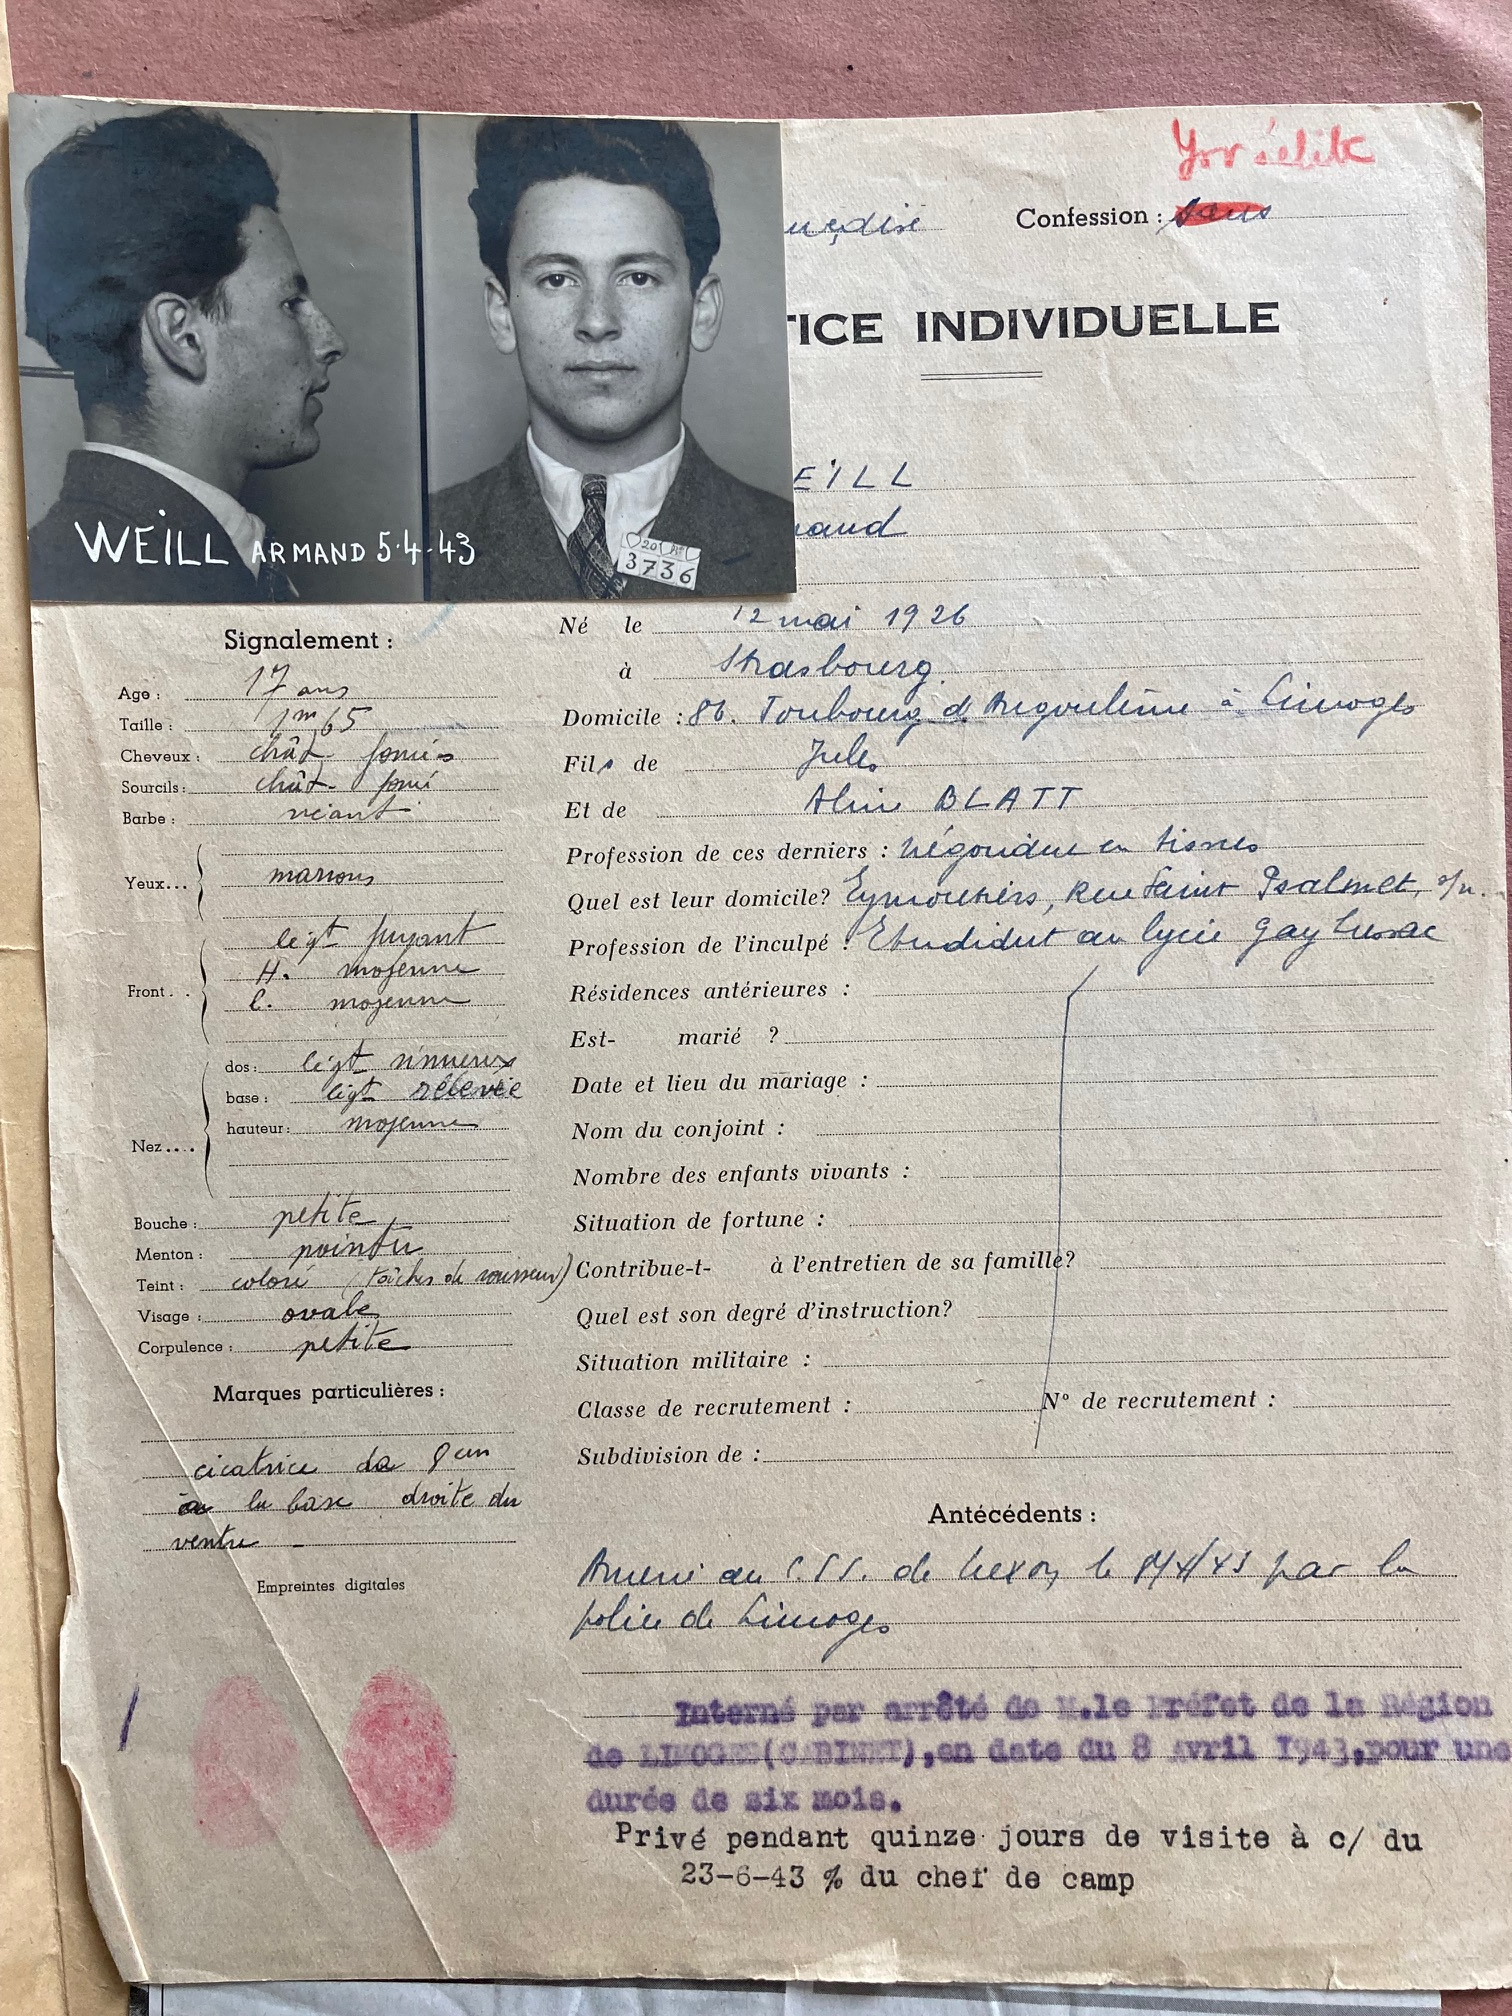 Israélite
Confession : sans
TICE INDIVIDUELLE
EILL
mand
WEILL ARMAND 5-4-43
3736
Signalement :
Age : 17 ans
Taille : 1m65
Cheveux : chât. foncés
Sourcils : chât. foncé
Barbe : néant
Yeux... marrons
légt fuyant
Front. . H. moyenne
l. moyenne
dos : légt sinueux
base : légt relevée
hauteur : moyenne
Nez....
Bouche : petite
Menton : pointu
Teint : coloré (tâches de rousseur)
Visage : ovale
Corpulence : petite
Marques particulières :
cicatrice de 8 cm
à la base droite du
ventre -
Empreintes digitales
Né le 12 mai 1926
à Strasbourg.
Domicile : 86. Foubourg d'Angoulême à Limoges
Fils de Jules
Et de Aline BLATT
Profession de ces derniers : négociant en tissus
Quel est leur domicile? Eymoutiers, Rue Saint Psalmet, s/n.
Profession de l'inculpé : Etudiant au lycée Gay Lussac
Résidences antérieures :
Est- marié ?
Date et lieu du mariage :
Nom du conjoint :
Nombre des enfants vivants :
Situation de fortune :
Contribue-t- à l'entretien de sa famille?
Quel est son degré d'instruction?
Situation militaire :
Classe de recrutement : N° de recrutement :
Subdivision de :
Antécédents :
Amené au C.S.S. de Nexon le par la
police de Limoges
Interné par arrêté de M.le Préfet de la Région
de LIMOGES(CABINET),en date du 8 Avril 1943,pour une
durée de six mois.
Privé pendant quinze jours de visite à c/ du
23-6-43 % du chef de camp